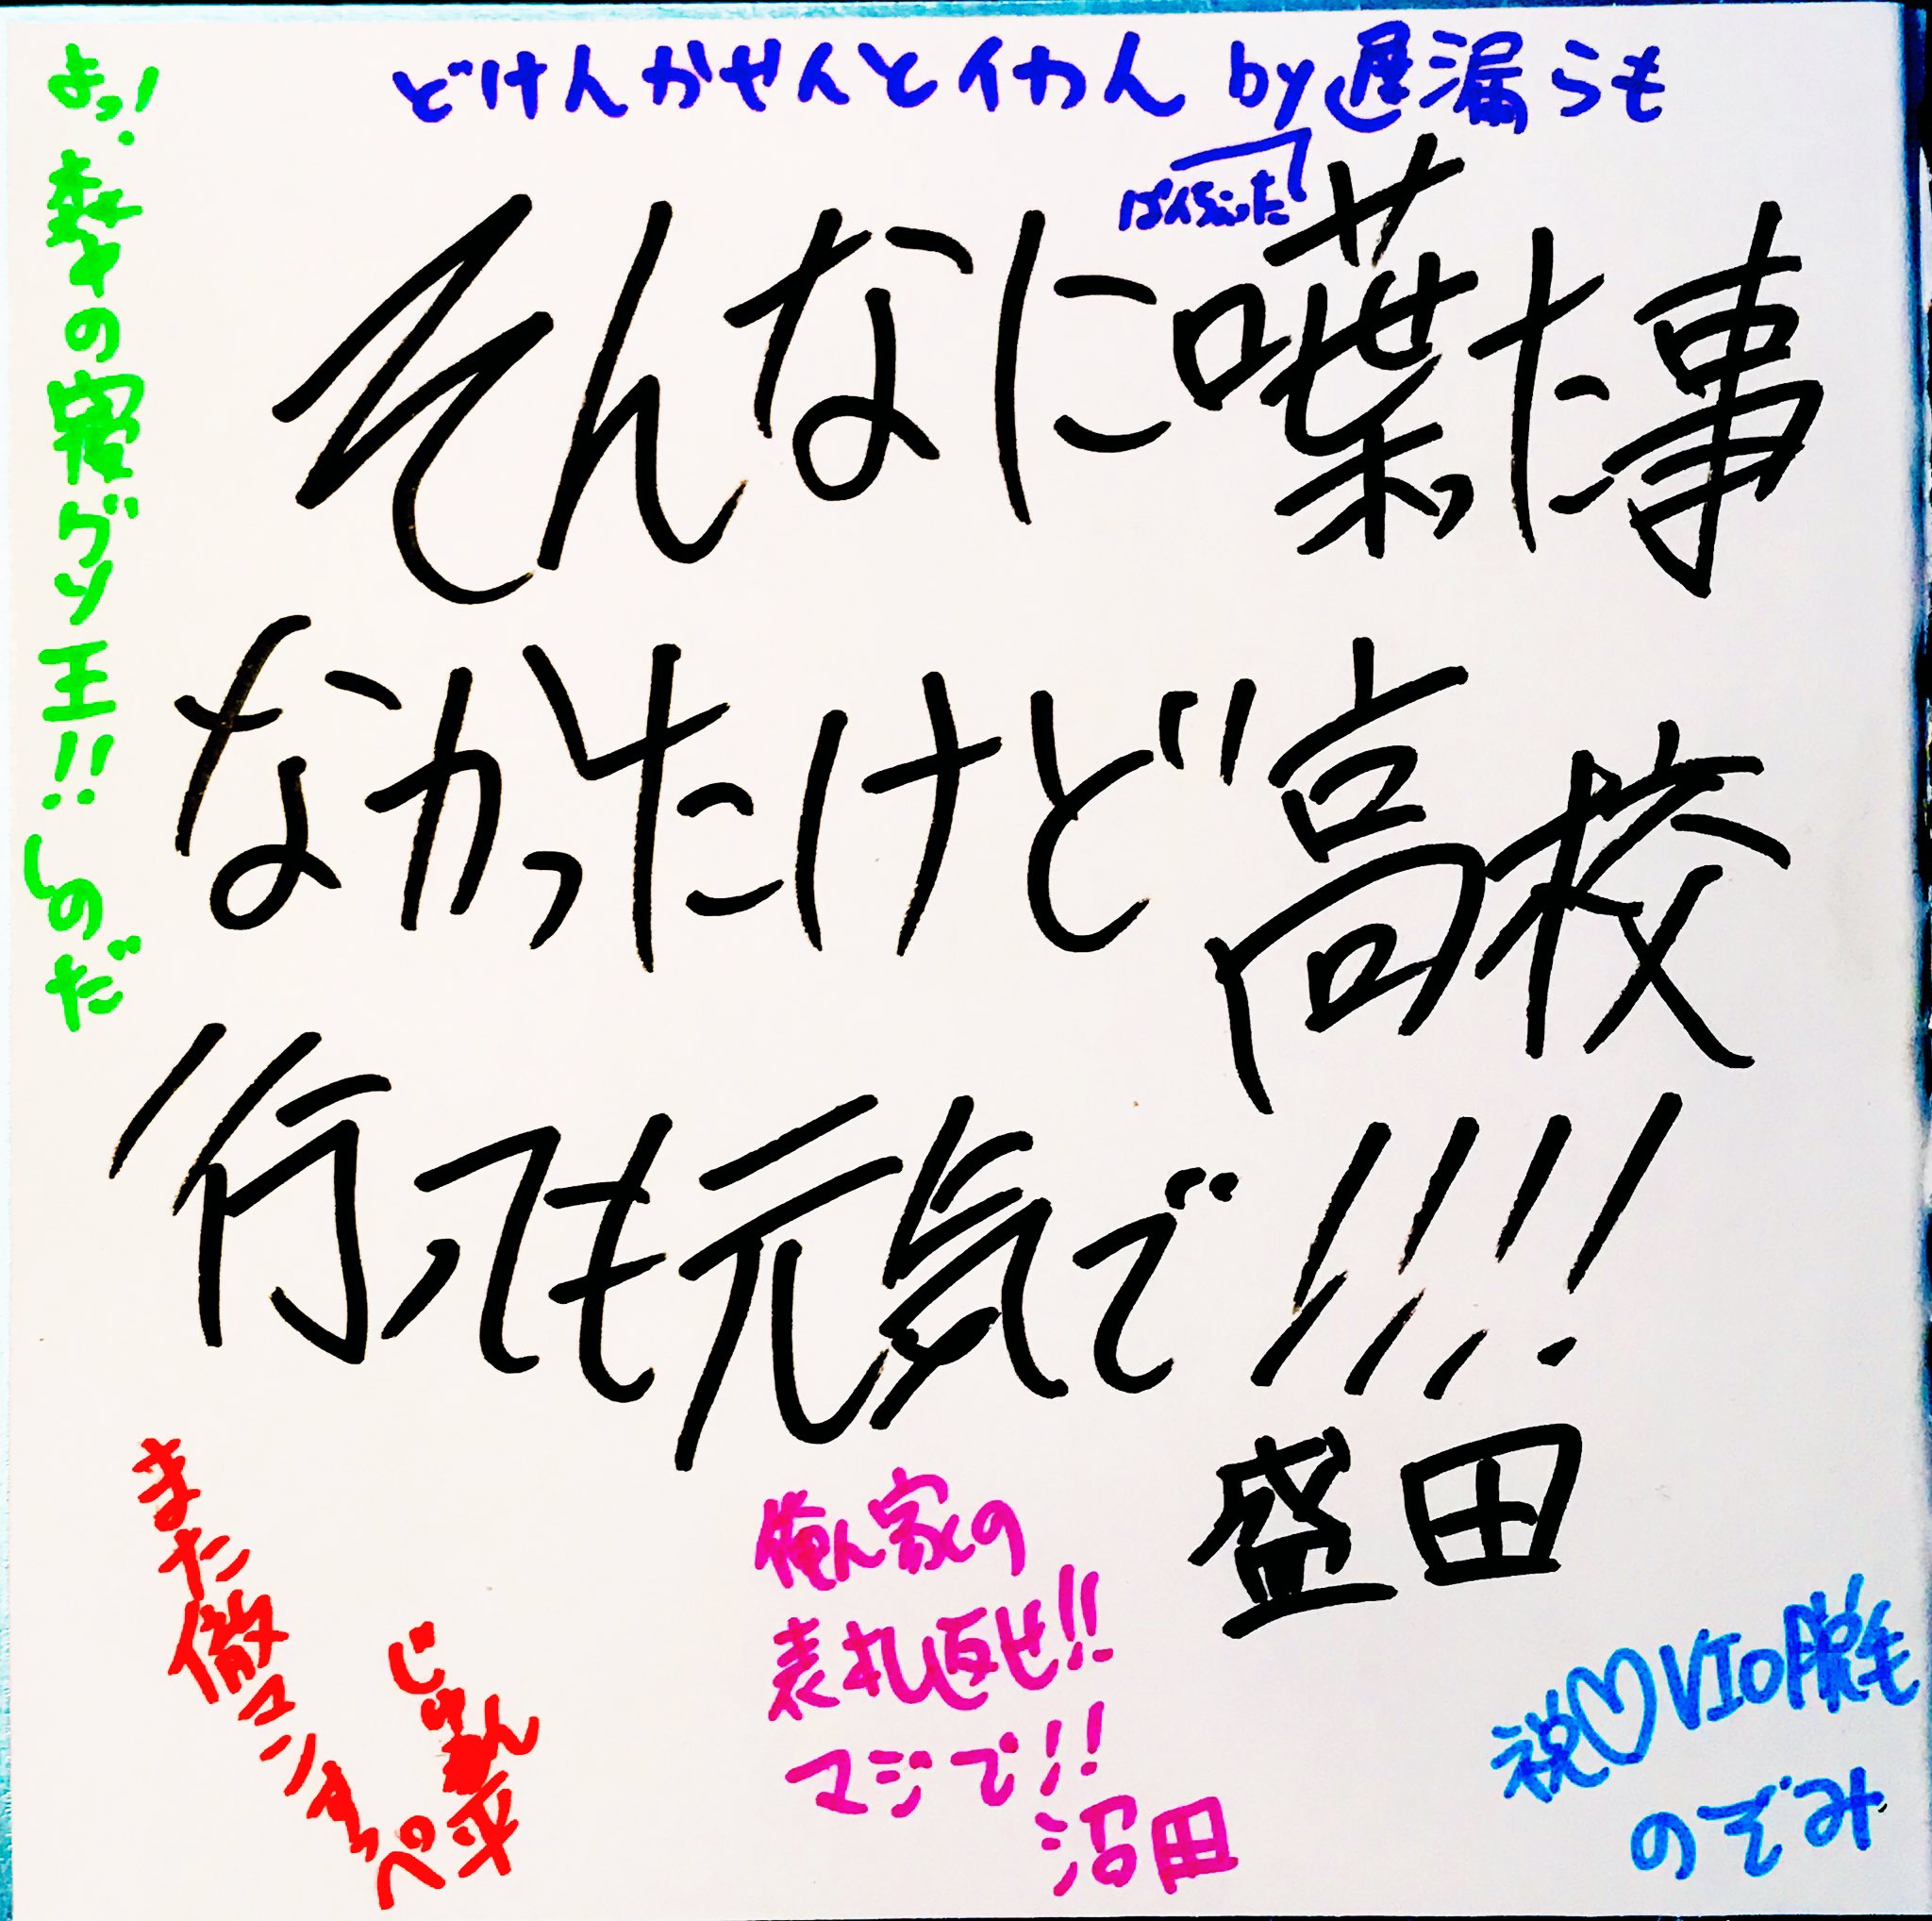 どけんかせんとイカん by遅漏らも
ばんちょった
よっ!森中の寝グソ王!!しのだ
そんなに喋った事
なかったけど高校
行っても元気で!!!!
盛田
また徹マンすっぺ
じゅん平
俺ん家の
表札返せ!!
マジで!!
沼田
祝♡VIO脱毛
のぞみ